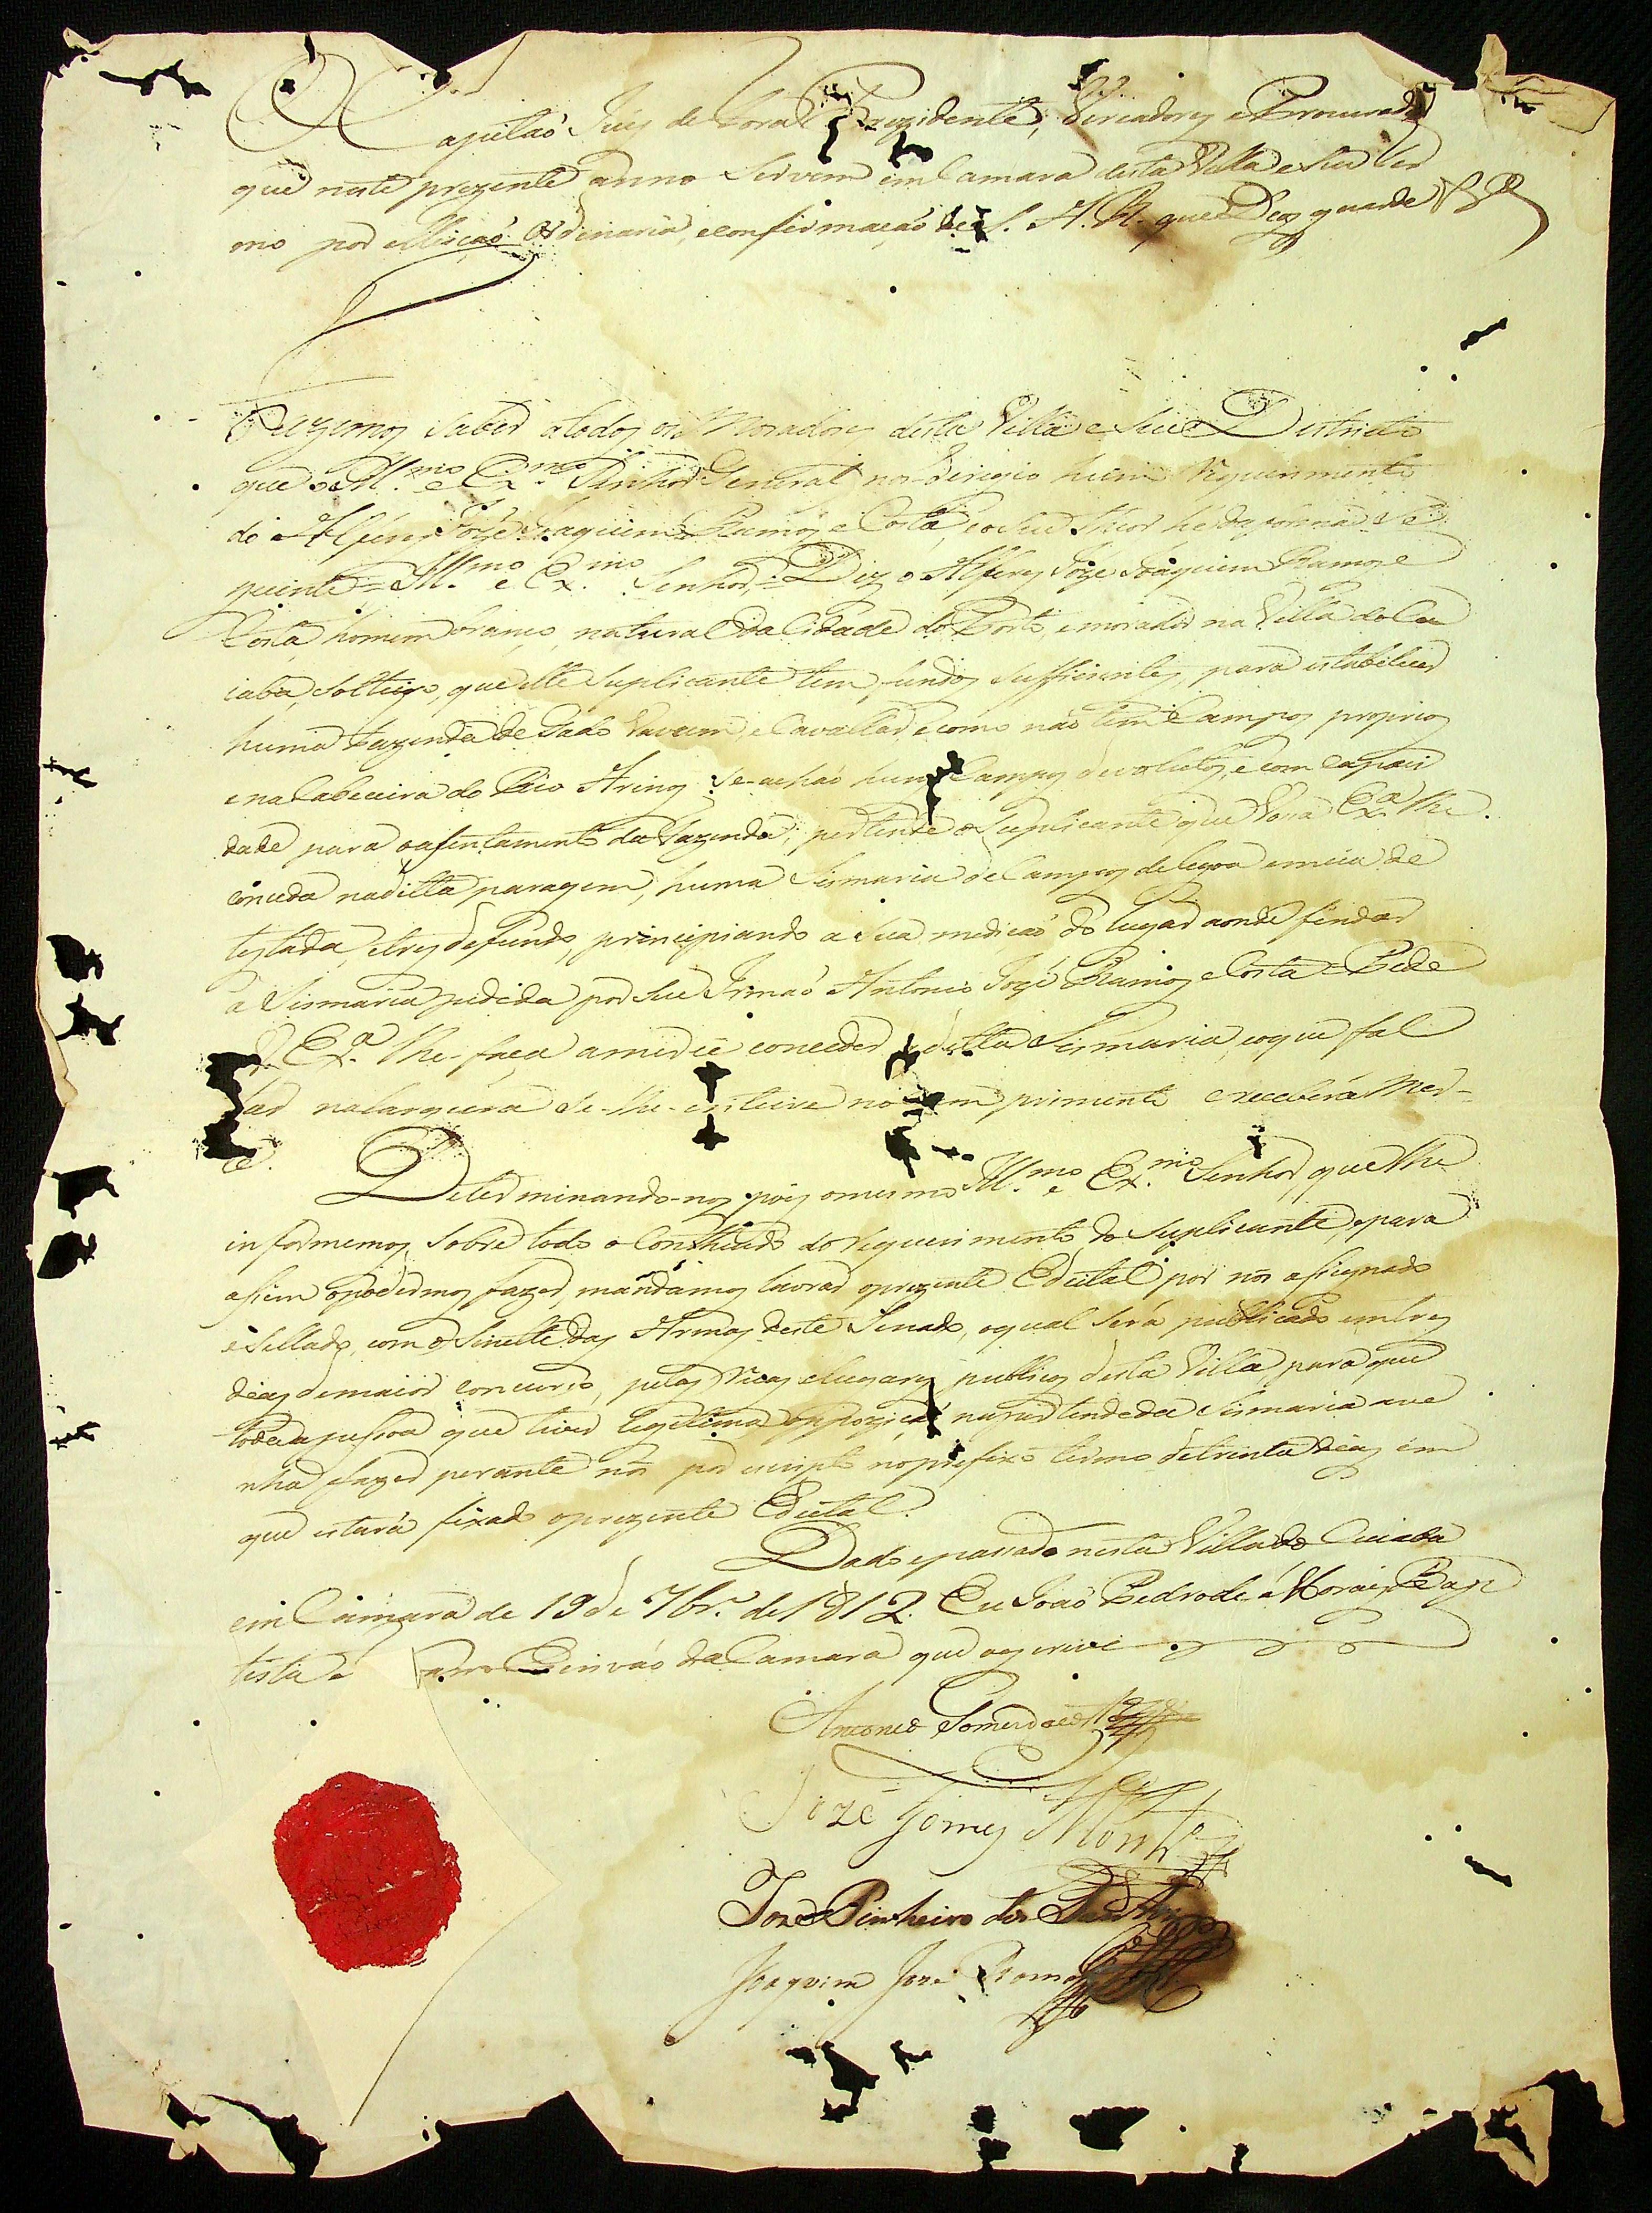 Capitaó Juiz de Fora Prezidente, Vereadores e Procurador
que neste prezente anno servem em Camara desta Villa e seu ter
mo por elleiçaó Ordinaria, e confirmaçaó de S. A. R. que Deos guarde
Fazemos saber a todos os Moradores desta Villa e seu Districto
que o Ill.mo e Ex.mo Senhor General nos dirigio hum requerimento
do Alferes Jozé Joaquim Ramos e Costa, e o seu theor he da forma se
guinte = Ill.mo e Ex.mo Senhor = Diz o Alferes Joze Joaquim Ramos e
Costa, homem branco, natural da Cidade do Porto, e morador na Villa do Cu
iaba, solteiro, que elle Suplicante tem fundos sufficientes para estabelecer
huma Fazenda de Gado Vacum, e Cavallar, e como naó tem Campos proprios
e na Cabeceira do Rio Arinos se achaó huns Campos devolutos, e com capaci
dade para o asentamento da Fazenda; pertende o Suplicante que Vossa Ex.a lhe
conceda na ditta paragem, huma Sismaria de Campos de legoa e meia de
testada, e tres de fundo, principiando a sua mediçaó do lugar aonde findar
a Sismaria pedida por seu Irmaó Antonio Jozé Ramos e Costa = Pede
V. Ex.a lhe faça a mercê conceder a ditta Sismaria, e o que fal
tar na largura se lhe inteire no comprimento e receberá Mer-
ce.
Determinando-nos pois o mesmo Ill.mo e Ex.mo Senhor, que lhe
informemos sobre todo o Contheudo do requerimento do Suplicante, e para
assim o podermos fazer, mandamos lavrar o prezente Edictal por nós assignado
e sellado, com o Sinette das Armas deste Senado, o qual será publicado em tres
dias de maior concurso, pelas Ruas e lugares publicos desta Villa para que
toda a pessoa que tiver legitima oppoziçaó na pertendeda Sismaria a ve
nha fazer perante nós por escripto no prefixo termo de trinta dias em
que estará fixado o prezente Edictal.
Dado e passado nesta Villa do Cuiaba
em Camara de 19 de 7br.o de 1812. Eu Joaó Pedro de Moraes Bap
tista Escrivaó da Camara que o escrevi
Antonio Gomes da
Jozé Gomes Montr.o
Joze Pinheiro dos Santos
Joaquim Joze Ramos